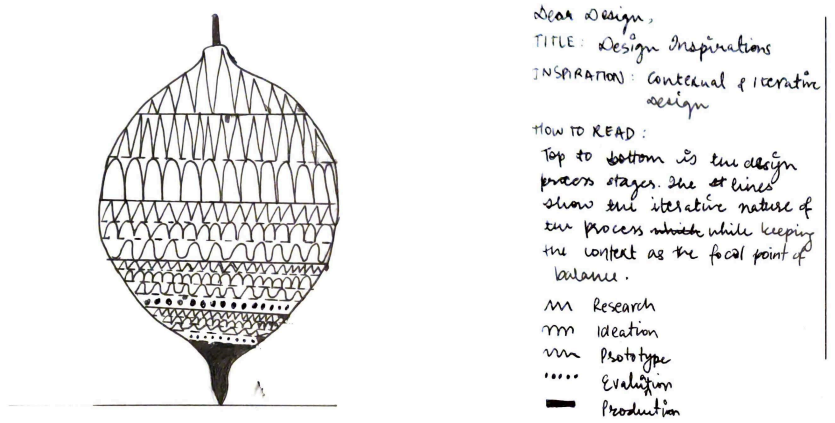 Dear Design,
TITLE: Design Inspirations
INSPIRATION: Contexual & Iterative
Design
HOW TO READ:
Top to bottom is the design
process stages. The lines
show the iterative nature of
the process which while keeping
the context as the focal point of
balance.
Research
Ideation
Prototype
Evaluation
Production